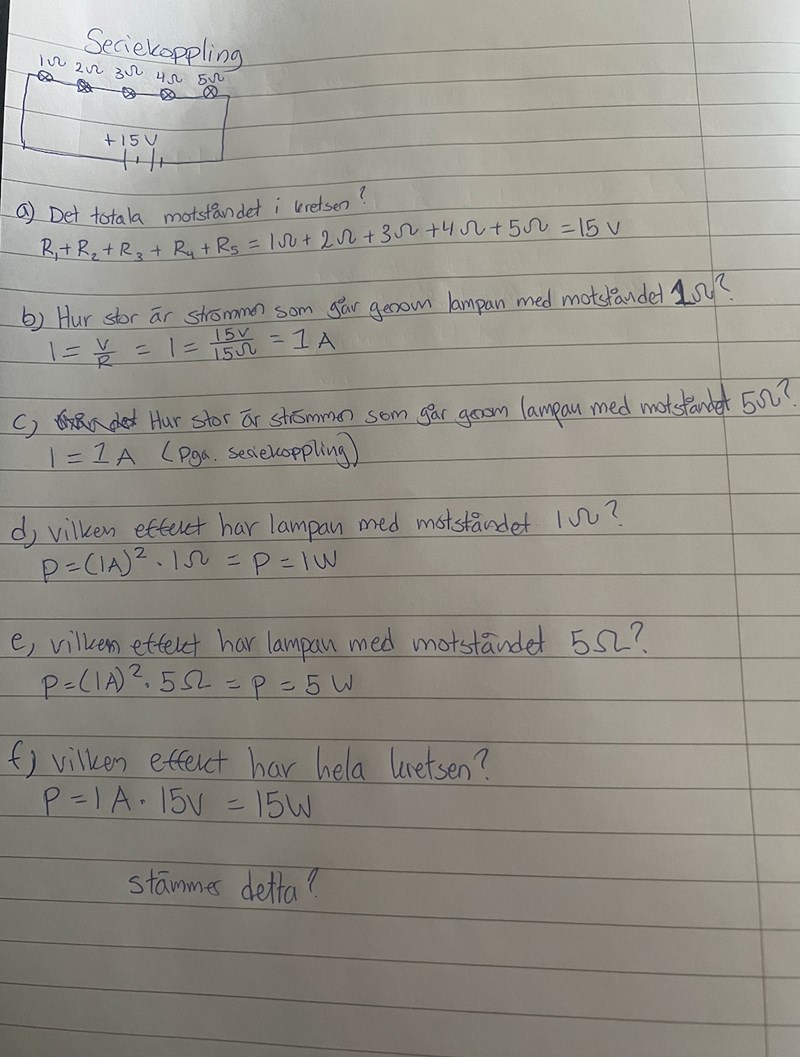 Seriekoppling
1Ω 2Ω 3Ω 4Ω 5Ω
+15V
a) Det totala motståndet i kretsen?
R₁+R₂+R₃+R₄+R₅ = 1Ω+2Ω+3Ω+4Ω+5Ω = 15 V
b) Hur stor är strömmen som går genom lampan med motståndet 1Ω?
I = V/R = I = 15V/15Ω = 1 A
c) Hur stor är strömmen som går genom lampan med motståndet 5Ω?
I = 1 A (Pga. seriekoppling)
d) vilken effekt har lampan med motståndet 1Ω?
P=(1A)²·1Ω = P = 1W
e) vilken effekt har lampan med motståndet 5Ω?
P=(1A)²·5Ω = P = 5 W
f) vilken effekt har hela kretsen?
P = 1A·15V = 15W
stämmer detta?